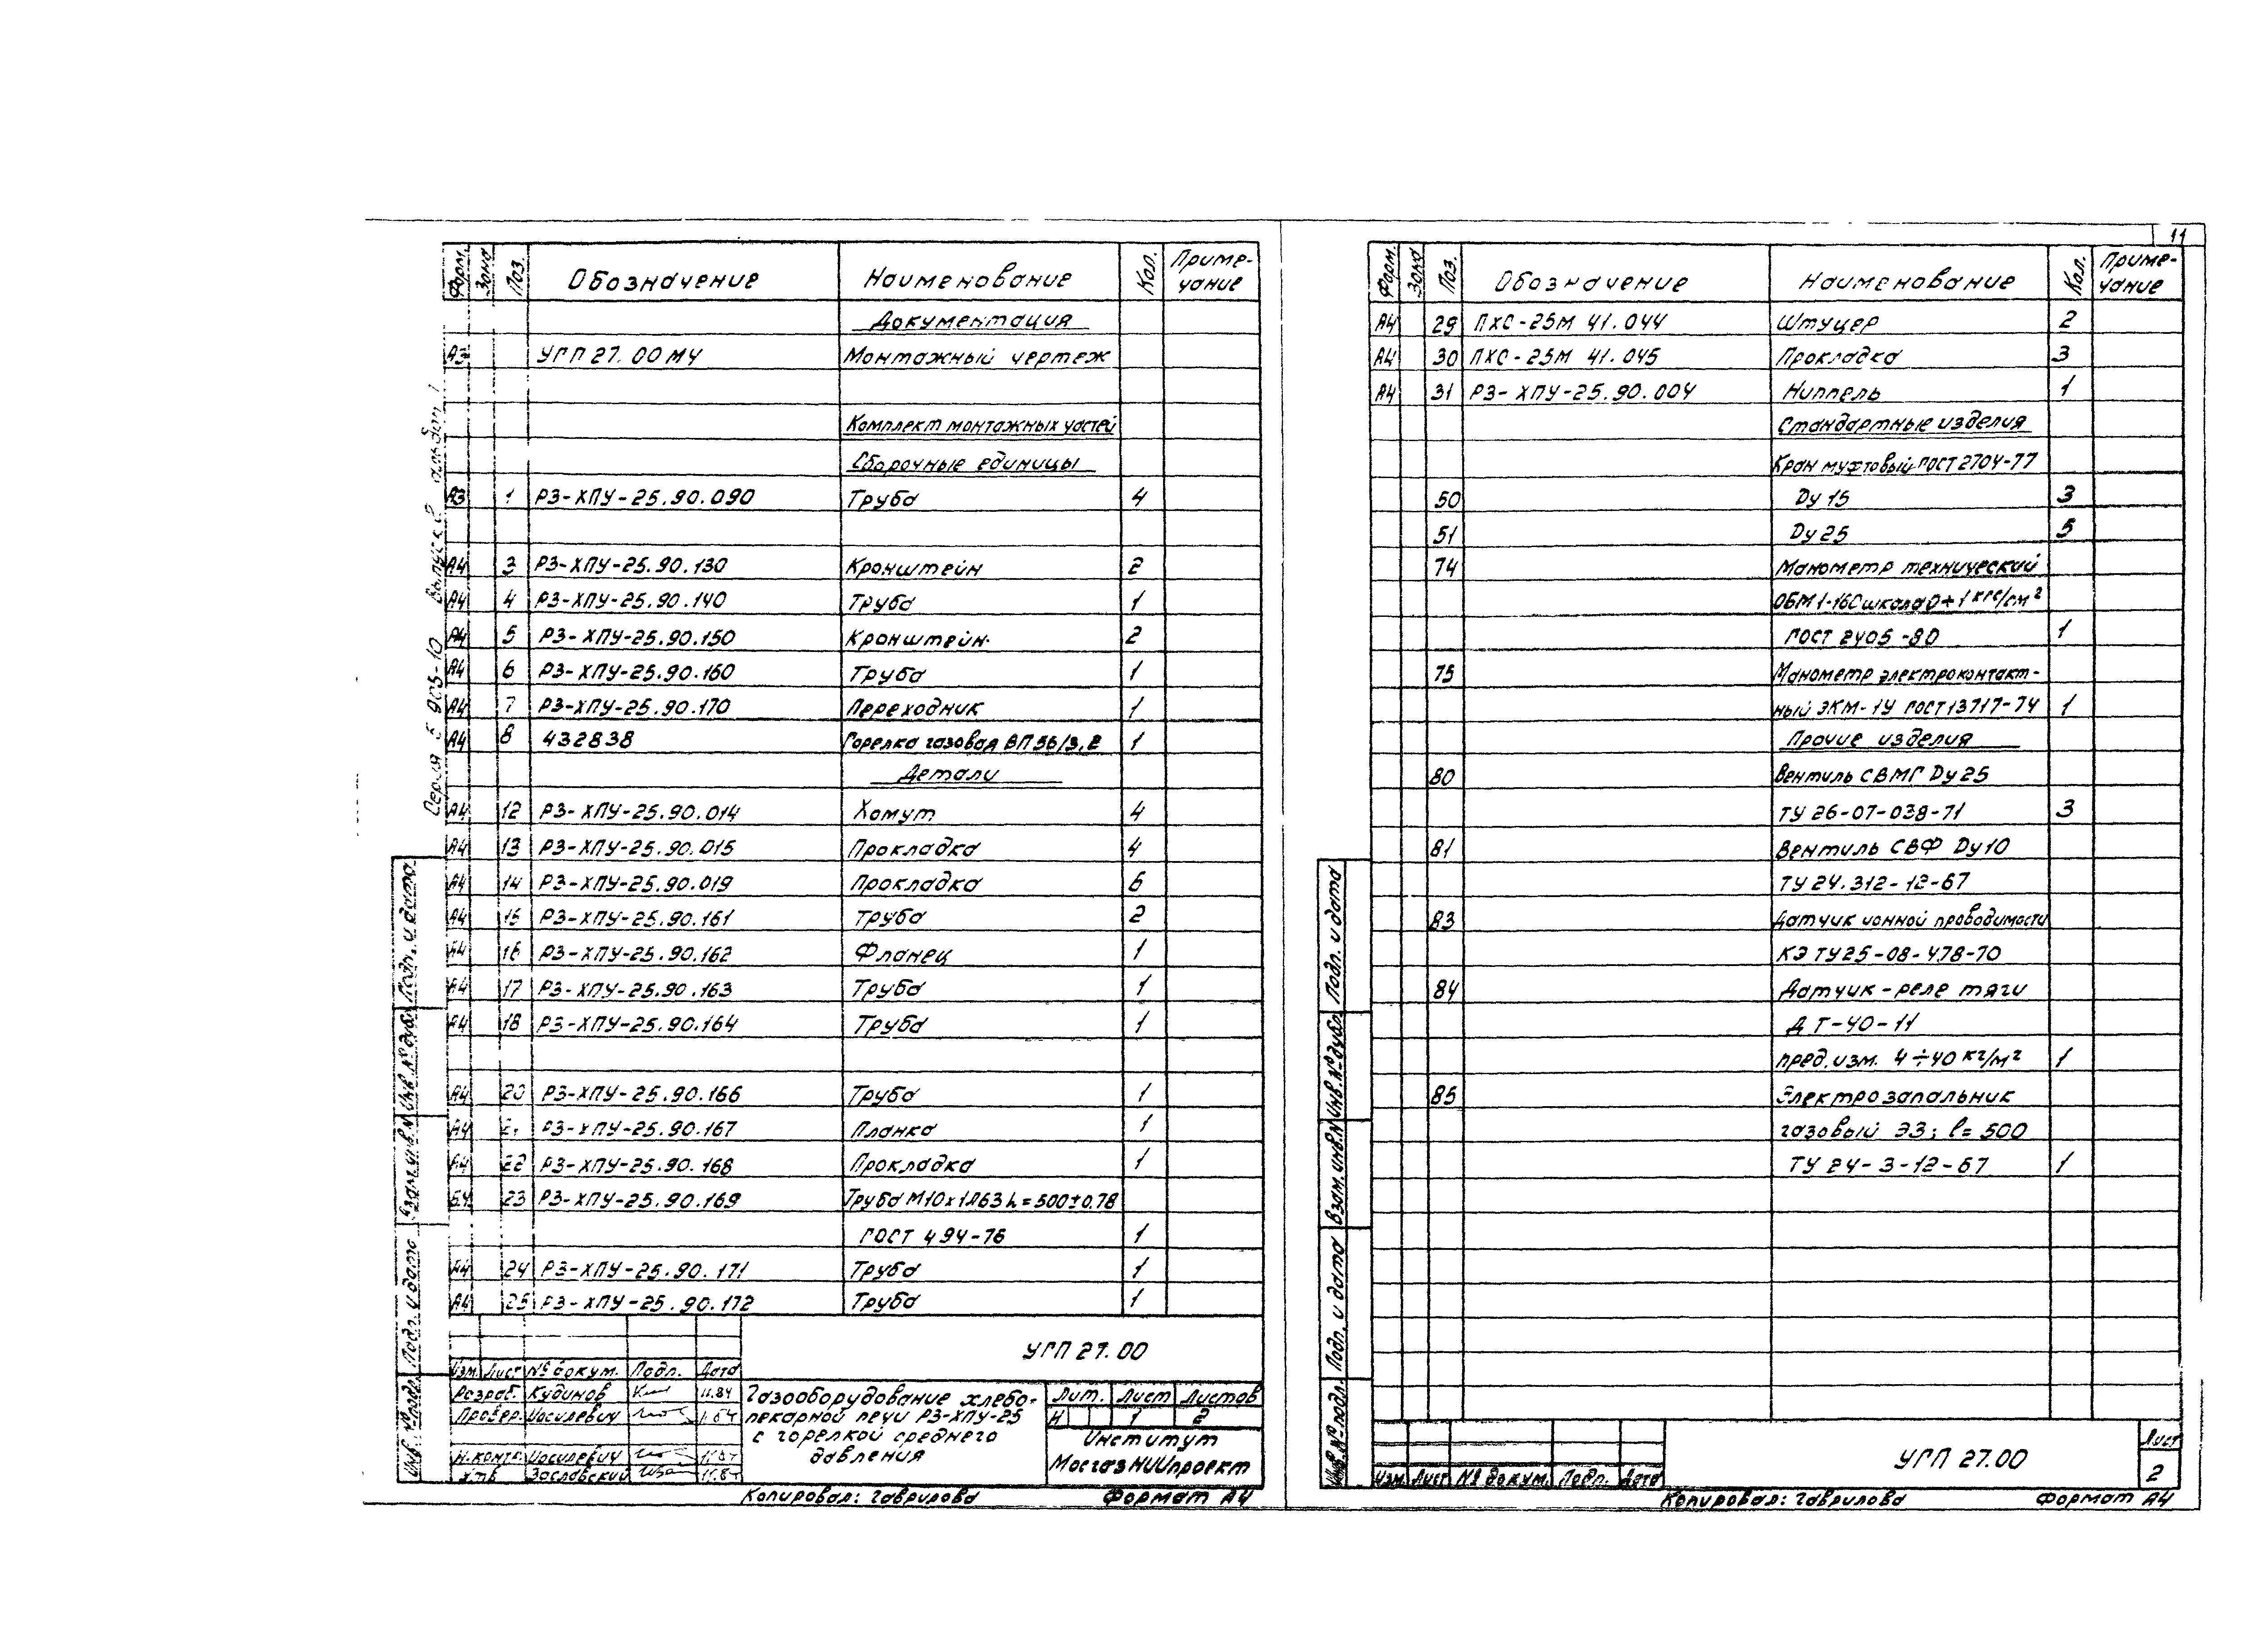 11
Форм. Зона Поз. Обозначение Наименование Кол. Приме-
чание
Документация
А3 УГП 27.00 МЧ Монтажный чертеж
Комплект монтажных частей
Сборочные единицы
А3 1 РЗ-ХПУ-25.90.090 Труба 4
А4 3 РЗ-ХПУ-25.90.130 Кронштейн 2
А4 4 РЗ-ХПУ-25.90.140 Труба 1
А4 5 РЗ-ХПУ-25.90.150 Кронштейн 2
А4 6 РЗ-ХПУ-25.90.160 Труба 1
А4 7 РЗ-ХПУ-25.90.170 Переходник 1
А4 8 432838 Горелка газовая ВП56/3,2 1
Детали
А4 12 РЗ-ХПУ-25.90.014 Хомут 4
А4 13 РЗ-ХПУ-25.90.015 Прокладка 4
А4 14 РЗ-ХПУ-25.90.019 Прокладка 6
А4 15 РЗ-ХПУ-25.90.161 Труба 2
А4 16 РЗ-ХПУ-25.90.162 Фланец 1
Б4 17 РЗ-ХПУ-25.90.163 Труба 1
А4 18 РЗ-ХПУ-25.90.164 Труба 1
А4 20 РЗ-ХПУ-25.90.166 Труба 1
А4 РЗ-ХПУ-25.90.167 Планка 1
А4 22 РЗ-ХПУ-25.90.168 Прокладка 1
Б4 23 РЗ-ХПУ-25.90.169 Труба М10х1Л63 L=500±0.78
ГОСТ 494-76 1
А4 24 РЗ-ХПУ-25.90.171 Труба 1
А4 25 РЗ-ХПУ-25.90.172 Труба 1
УГП 27.00
Изм. Лист № докум. Подп. Дата
Разраб. Кудинов 11.84
Провер. Иосилевич
Н.контр. Иосилевич
Утв. Заславский
Газооборудование хлебо-
пекарной печи РЗ-ХПУ-25
с горелкой среднего
давления
Лит. Лист Листов
И 1 2
Институт
МосгазНИИпроект
Копировал: Гаврилова Формат А4
Серия 5.905-10 Выпуск 2 альбом 1
Подп. и дата
Инв. № дубл.
Взам. инв. №
Подп. и дата
Инв. № подл.
Форм. Зона Поз. Обозначение Наименование Кол. Приме-
чание
А4 29 ПХС-25М 41.044 Штуцер 2
А4 30 ПХС-25М 41.045 Прокладка 3
А4 31 РЗ-ХПУ-25.90.004 Ниппель 1
Стандартные изделия
Кран муфтовый ГОСТ 2704-77
50 Ду 15 3
51 Ду 25 5
74 Манометр технический
ОБМ1-160 шкала 0÷1 кгс/см²
ГОСТ 2405-80 1
75 Манометр электроконтакт-
ный ЭКМ-1У ГОСТ 13717-74 1
Прочие изделия
80 Вентиль СВМГ Ду 25
ТУ 26-07-038-71 3
81 Вентиль СВФ Ду 10
ТУ 24.312-12-67
83 Датчик ионной проводимости
КЭ ТУ25-08-478-70
84 Датчик-реле тяги
ДТ-40-11
пред. изм. 4÷40 кг/м² 1
85 Электрозапальник
газовый ЭЗ; l=500
ТУ 24-3-12-67 1
Подп. и дата
Инв. № дубл.
Взам. инв. №
Подп. и дата
Инв. № подл.
Изм. Лист № докум. Подп. Дата
УГП 27.00
Лист
2
Копировал: Гаврилова Формат А4